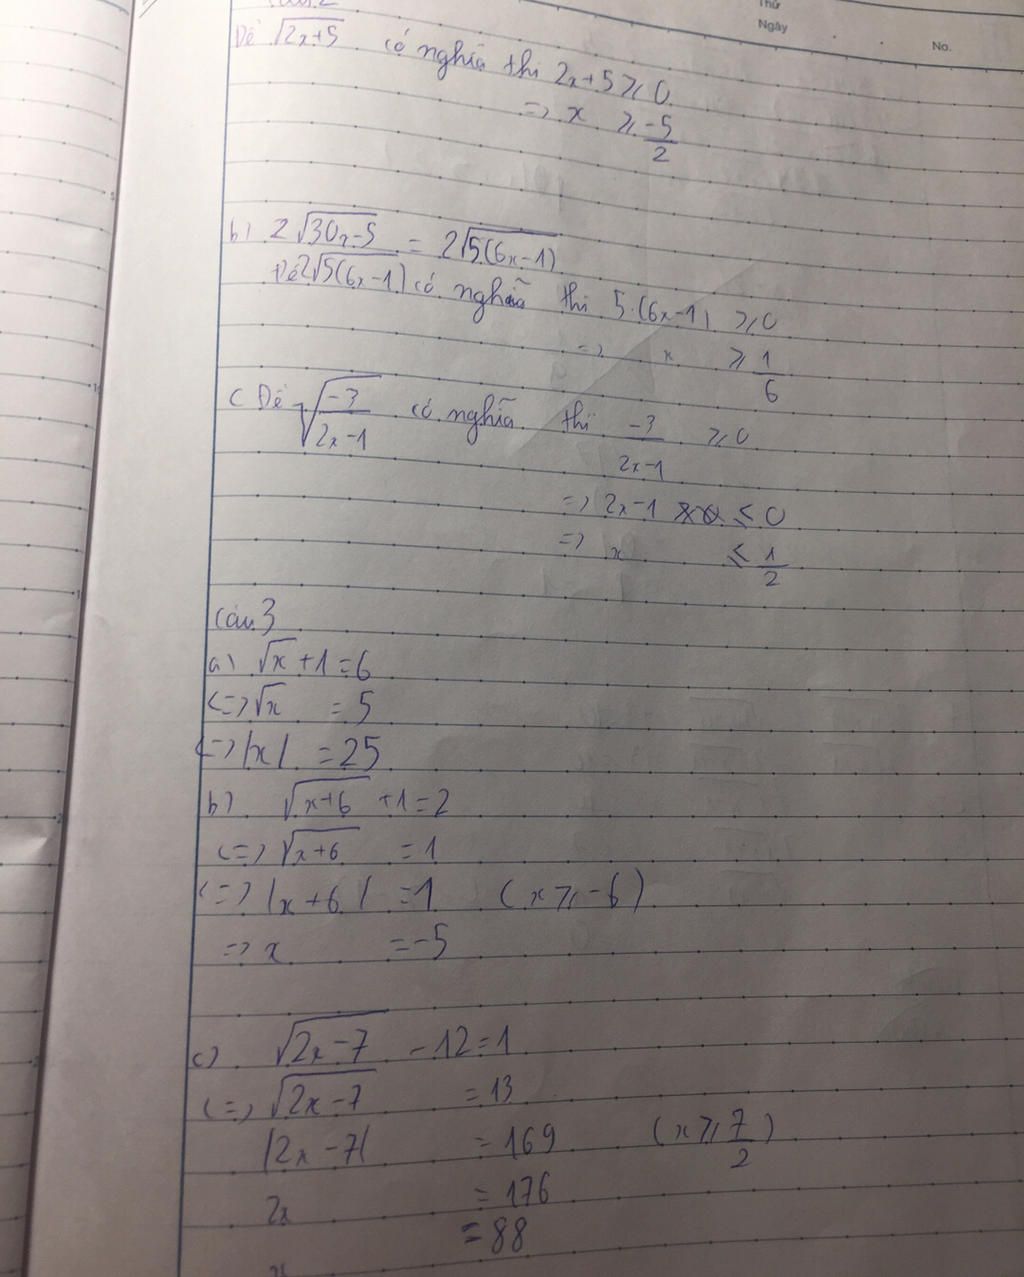 Thứ
Ngày
No.
Để √(2x+5) có nghĩa thì 2x+5 ⩾ 0
=> x ⩾ -5/2
b) 2√(30x-5) = 2√(5(6x-1))
Để 2√(5(6x-1)) có nghĩa thì 5.(6x-1) ⩾ 0
=> x ⩾ 1/6
c Để √(-3/(2x-1)) có nghĩa thì -3/(2x-1) ⩾ 0
=> 2x-1 ⩽ 0
=> x ⩽ 1/2
Câu 3
a) √x +1=6
<=> √x = 5
<=> |x| = 25
b) √(x+6) +1=2
<=> √(x+6) = 1
<=> |x+6| =1 (x ⩾ -6)
=> x =-5
c) √(2x-7) -12=1
<=> √(2x-7) = 13
|2x-7| = 169 (x ⩾ 7/2)
2x = 176
= 88